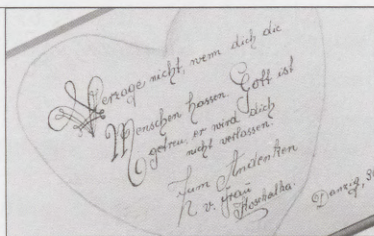 Verzage nicht, wenn dich die
Menschen hassen. Gott ist
getreu, er wird dich
nicht verlassen.
Zum Andenken
v. Frau
Danzig,